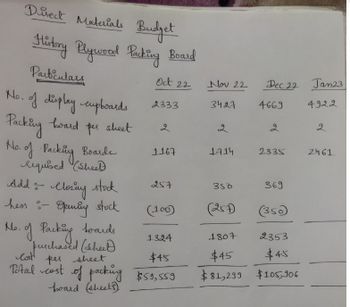 Direct Materials Budget
History Plywood Packing Board
Particulars Oct 22 Nov 22 Dec 22 Jan 23
No. of display cupboards 2333 3427 4669 4922
Packing board per sheet 2 2 2 2
No. of Packing Boards 1167 1714 2335 2461
required (sheet)
Add :- Closing stock 257 350 369
Less :- Opening stock (100) (257) (350)
No. of Packing boards 1324 1807 2353
purchased (sheet)
Cost per sheet $45 $45 $45
Total cost of packing $59,559 $81,299 $105,906
board (sheets)